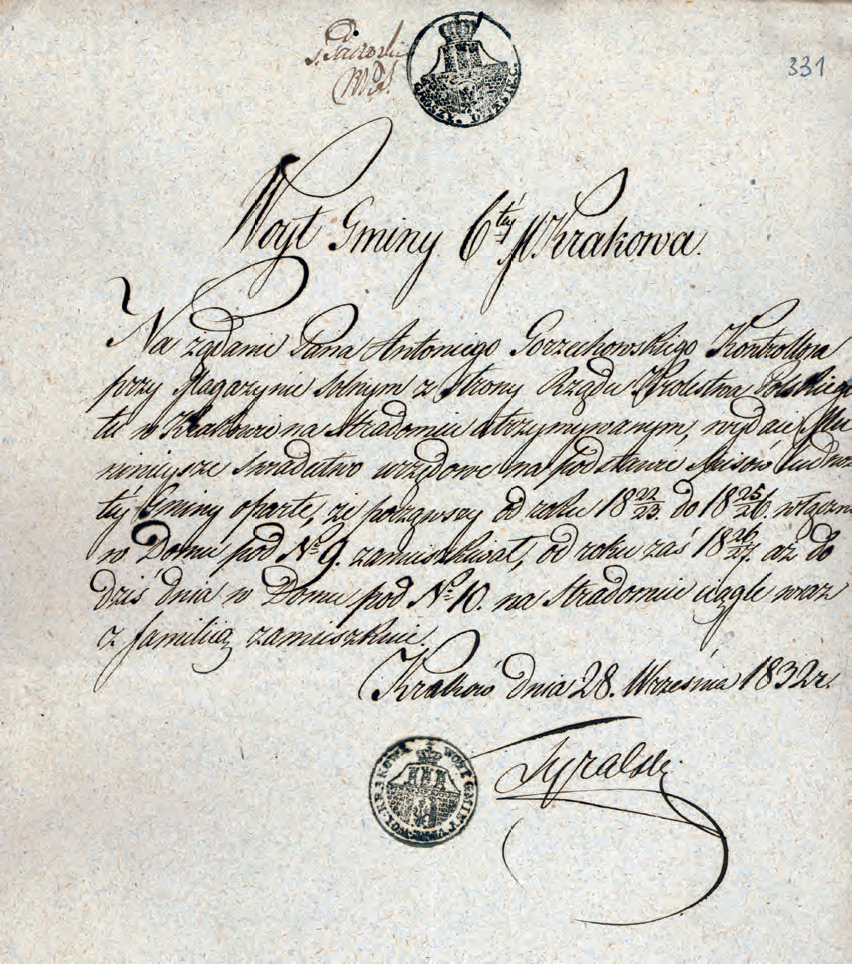 331
GROSZY. DZIESIĘC.
Woyt Gminy 6tey M. Krakowa.
Na żądanie Pana Antoniego Gorzechowskiego Kontrollera
przy Magazynie Solnym z strony Rządu Królestwa Polskiego
tu w Krakowie na Stradomiu utrzymywanym, wydaie Mu
ninieysze świadectwo urzędowe na podstawie Spisów Ludno
téy Gminy oparte, że począwszy od roku 18 22/23. do 18 25/26 włączn
w Domu pod No 9. zamieszkiwał, od roku zaś 18 26/27. aż do
dziś dnia w Domu pod No 10. na Stradomiu ciągle wraz
z familią zamieszkuie.
Kraków dnia 28. Września 1832 r.
WOYT GMINY VI
KRAKOWA